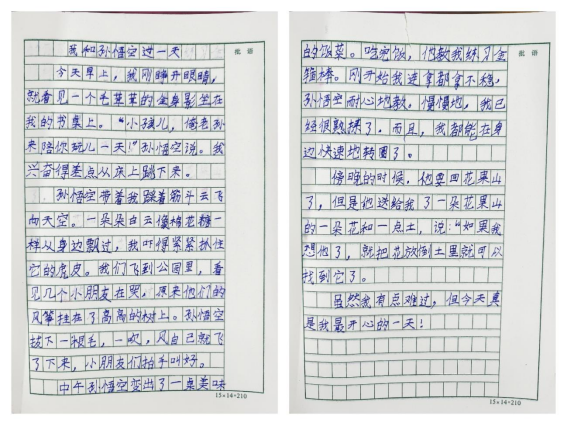 批语
我和孙悟空过一天
今天早上，我刚睁开眼睛，
就看见一个毛茸茸的金身影坐在
我的书桌上。“小孩儿，俺老孙
来陪你玩儿一天！”孙悟空说。我
兴奋得差点从床上蹦下来。
孙悟空带着我踩着筋斗云飞
向天空。一朵朵白云像棉花糖一
样从身边飘过，我吓得紧紧抓住
它的虎皮。我们飞到公园里，看
见几个小朋友在哭，原来他们的
风筝挂在了高高的树上。孙悟空
拔下一根毛，一吹，风自己就飞
了下来，小朋友们拍手叫好。
中午孙悟空变出了一桌美味
15×14=210
批语
的饭菜。吃完饭，他教我练习金
箍棒。刚开始我连拿都拿不稳，
孙悟空耐心地教。慢慢地，我已
经很熟练了。而且，我都能在身
边快速地转圈了。
傍晚的时候，他要回花果山
了，但是他送给我了一朵花果山
的一朵花和一点土，说：“如果我
想他了，就把花放倒土里就可以
找到它了。
虽然我有点难过，但今天真
是我最开心的一天！
15×14=210